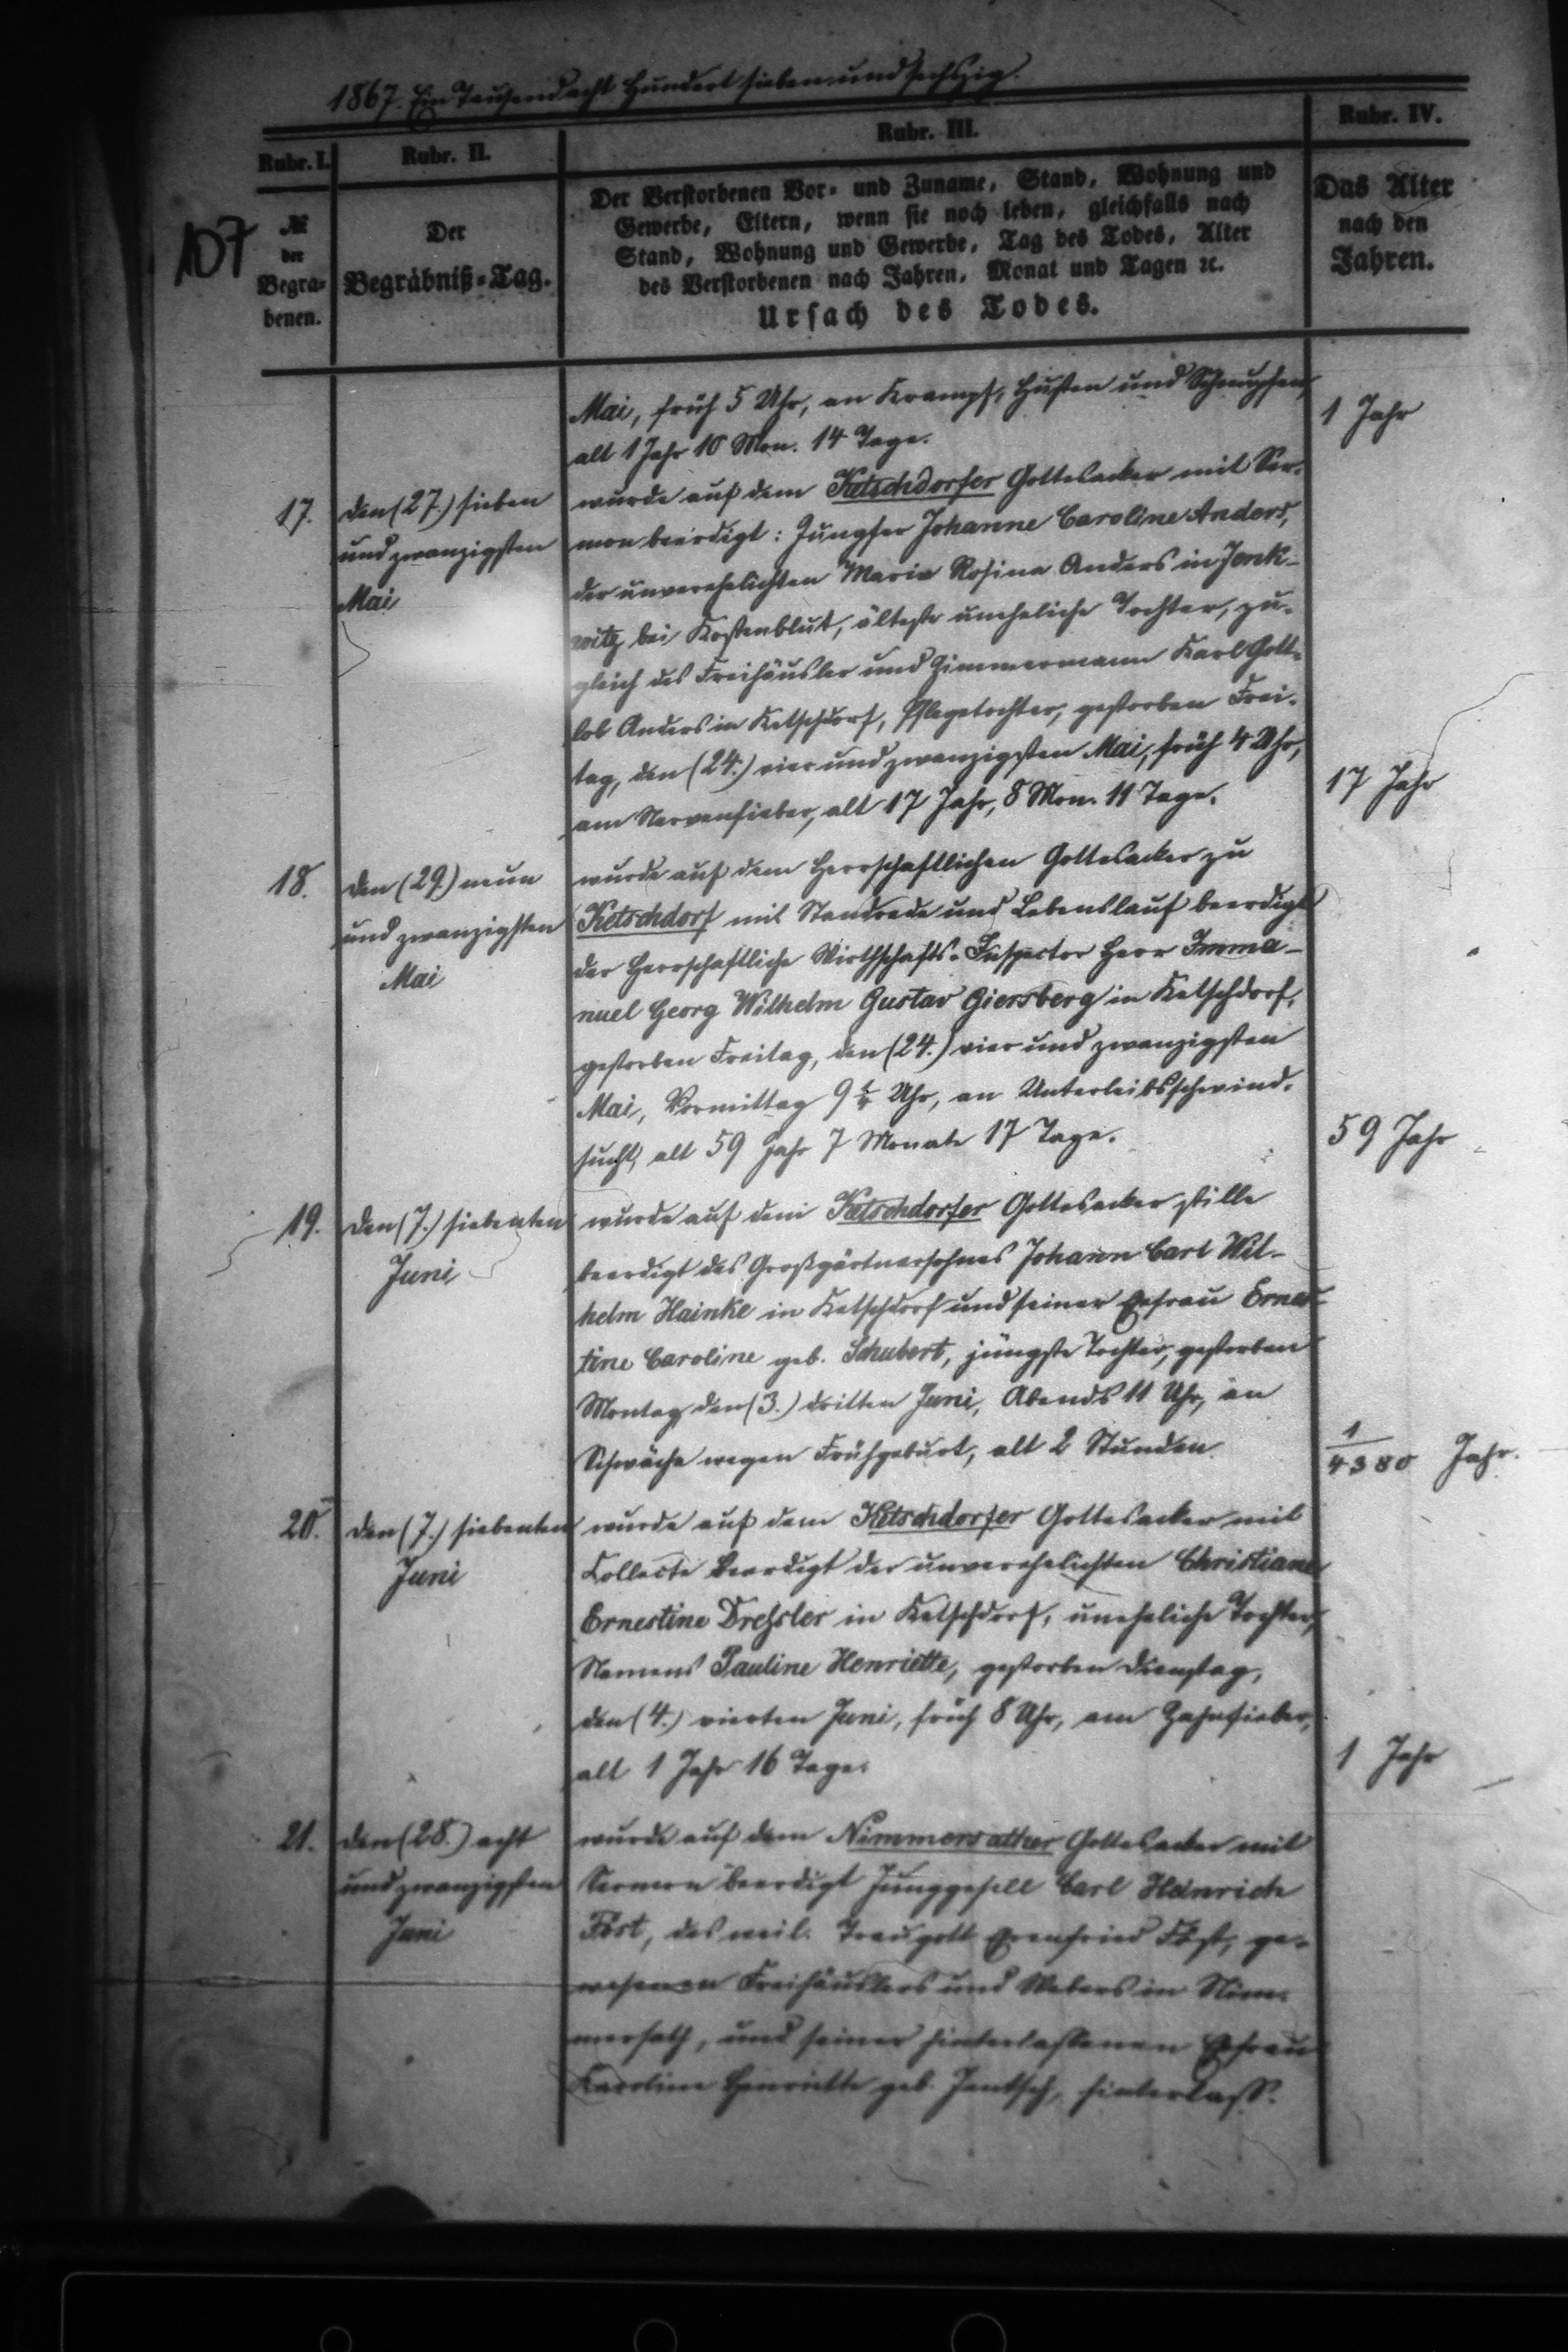 1867. Ein Tausend acht Hundert sieben und sechszig.
Rubr. I.
Rubr. II.
Rubr. III.
Rubr. IV.
107
№
der
Begra-
benen.
Der
Begräbniß-Tag.
Der Verstorbenen Vor- und Zuname, Stand, Wohnung und
Gewerbe, Eltern, wenn sie noch leben, gleichfalls nach
Stand, Wohnung und Gewerbe, Tag des Todes, Alter
des Verstorbenen nach Jahren, Monat und Tagen ꝛc.
Ursach des Todes.
Das Alter
nach den
Jahren.
Mai, früh 5 Uhr, an Krampf, Husten und Schnupfen,
alt 1 Jahr 10 Mon. 14 Tage.
1 Jahr
17.
den (27.) sieben
und zwanzigsten
Mai
wurde auf dem Ketschdorfer Gottesacker mit Ser-
mon beerdigt: Jungfer Johanne Caroline Anders,
der unverehelichten Maria Rosina Anders in Jenk-
witz bei Kostenblut, älteste uneheliche Tochter, zu-
gleich des Freihäusler und Zimmermann Karl Gott-
lob Anders in Ketschdorf, Pflegetochter, gestorben Frei-
tag, den (24.) vier und zwanzigsten Mai, früh 4 Uhr,
am Nervenfieber, alt 17 Jahr, 8 Mon. 11 Tage.
17 Jahr
18.
den (29.) neun
und zwanzigsten
Mai
wurde auf dem herrschaftlichen Gottesacker zu
Ketschdorf mit Standrede und Lebenslauf beerdigt
der herrschaftliche Wirthschafts-Inspector Herr Imma-
nuel Georg Wilhelm Gustav Giersberg in Ketschdorf,
gestorben Freitag, den (24.) vier und zwanzigsten
Mai, Vormittag 9 Uhr, an Unterleibsschwind-
sucht, alt 59 Jahr 7 Monate 17 Tage.
59 Jahr
19.
den (7.) siebenten
Juni
wurde auf dem Ketschdorfer Gottesacker stille
beerdigt des Großgärtnersohnes Johann Carl Wil-
helm Hainke in Ketschdorf und seiner Ehefrau Ernes-
tine Caroline geb. Schubert, jüngste Tochter, gestorben
Montag den (3.) dritten Juni, Abends 11 Uhr, an
Schwäche wegen Frühgeburt, alt 2 Stunden.
1/4380 Jahr.
20.
den (7.) siebenten
Juni
wurde auf dem Ketschdorfer Gottesacker mit
Collecte beerdigt der unverehelichten Christiane
Ernestine Dreßler in Ketschdorf, uneheliche Tochter,
Namens Pauline Henriette, gestorben Dienstag,
den (4.) vierten Juni, früh 8 Uhr, am Zahnfieber,
alt 1 Jahr 16 Tage.
1 Jahr
21.
den (28.) acht
und zwanzigsten
Juni
wurde auf dem Nimmersather Gottesacker mit
Sermon beerdigt Junggesell Carl Heinrich
Föst, des weil. Traugott Ehrenfried Föst, ge-
wesenen Freihäuslers und Webers in Nim-
mersath, und seiner hinterlassenen Ehefrau
Karoline Henriette geb. Jentsch, hinterlass.